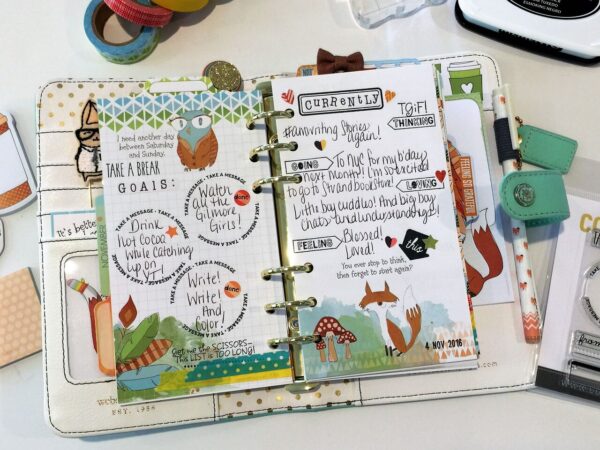 I need another day
between Saturday
and Sunday.
TAKE A BREAK
GOALS:
Watch
all the
Gilmore
Girls!
done!
TAKE A MESSAGE · TAKE A MESSAGE · TAKE A MESSAGE
Drink
Hot Cocoa
While Catching
up on
TAKE A MESSAGE · TAKE A MESSAGE · TAKE A MESSAGE
Write!
Write!
And
Color!
done!
TAKE A MESSAGE · TAKE A MESSAGE · TAKE A MESSAGE
Get me the SCISSORS—
THIS LIST is TOO LONG!
CURRENTLY
TGIF!
THINKING
Handwriting Stories
again!
GOING
To NYC for my b'day
next month! I'm so excited
to go to Strand bookstore!
LOVING
Little boy cuddles! And big boy
chats
FEELING
Blessed!
Loved!
chic
You ever stop to think,
then forget to start again?
4 NOV 2016
it's better
NOVEMBER
FEELING SO GRATEFUL
EST. 1984